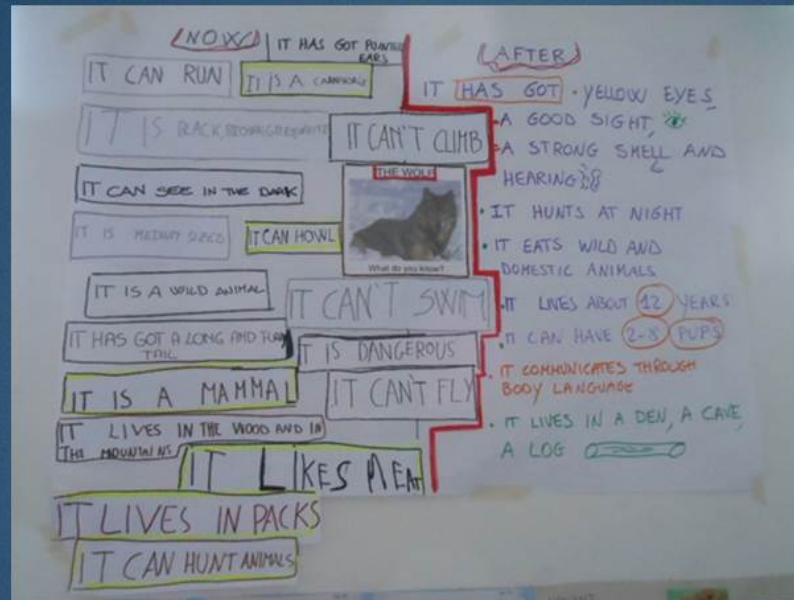 NOW
IT HAS GOT POINTED
EARS
IT CAN RUN
IT IS A CARNIVORE
IT IS BLACK, BROWN, GREY
IT CAN'T CLIMB
IT CAN SEE IN THE DARK
THE WOLF
What do you know?
IT IS MEDIUM SIZED
IT CAN HOWL
IT IS A WILD ANIMAL
IT CAN'T SWIM
IT HAS GOT A LONG AND
TAIL
IT IS DANGEROUS
IT IS A MAMMAL
IT CAN'T FLY
IT LIVES IN THE WOOD AND IN
THE MOUNTAINS
IT LIKES MEAT
IT LIVES IN PACKS
IT CAN HUNT ANIMALS
AFTER
IT HAS GOT • YELLOW EYES
• A GOOD SIGHT,
• A STRONG SMELL AND
HEARING
• IT HUNTS AT NIGHT
• IT EATS WILD AND
DOMESTIC ANIMALS
• IT LIVES ABOUT 12 YEARS
• IT CAN HAVE 2-8 PUPS
• IT COMMUNICATES THROUGH
BODY LANGUAGE
• IT LIVES IN A DEN, A CAVE,
A LOG